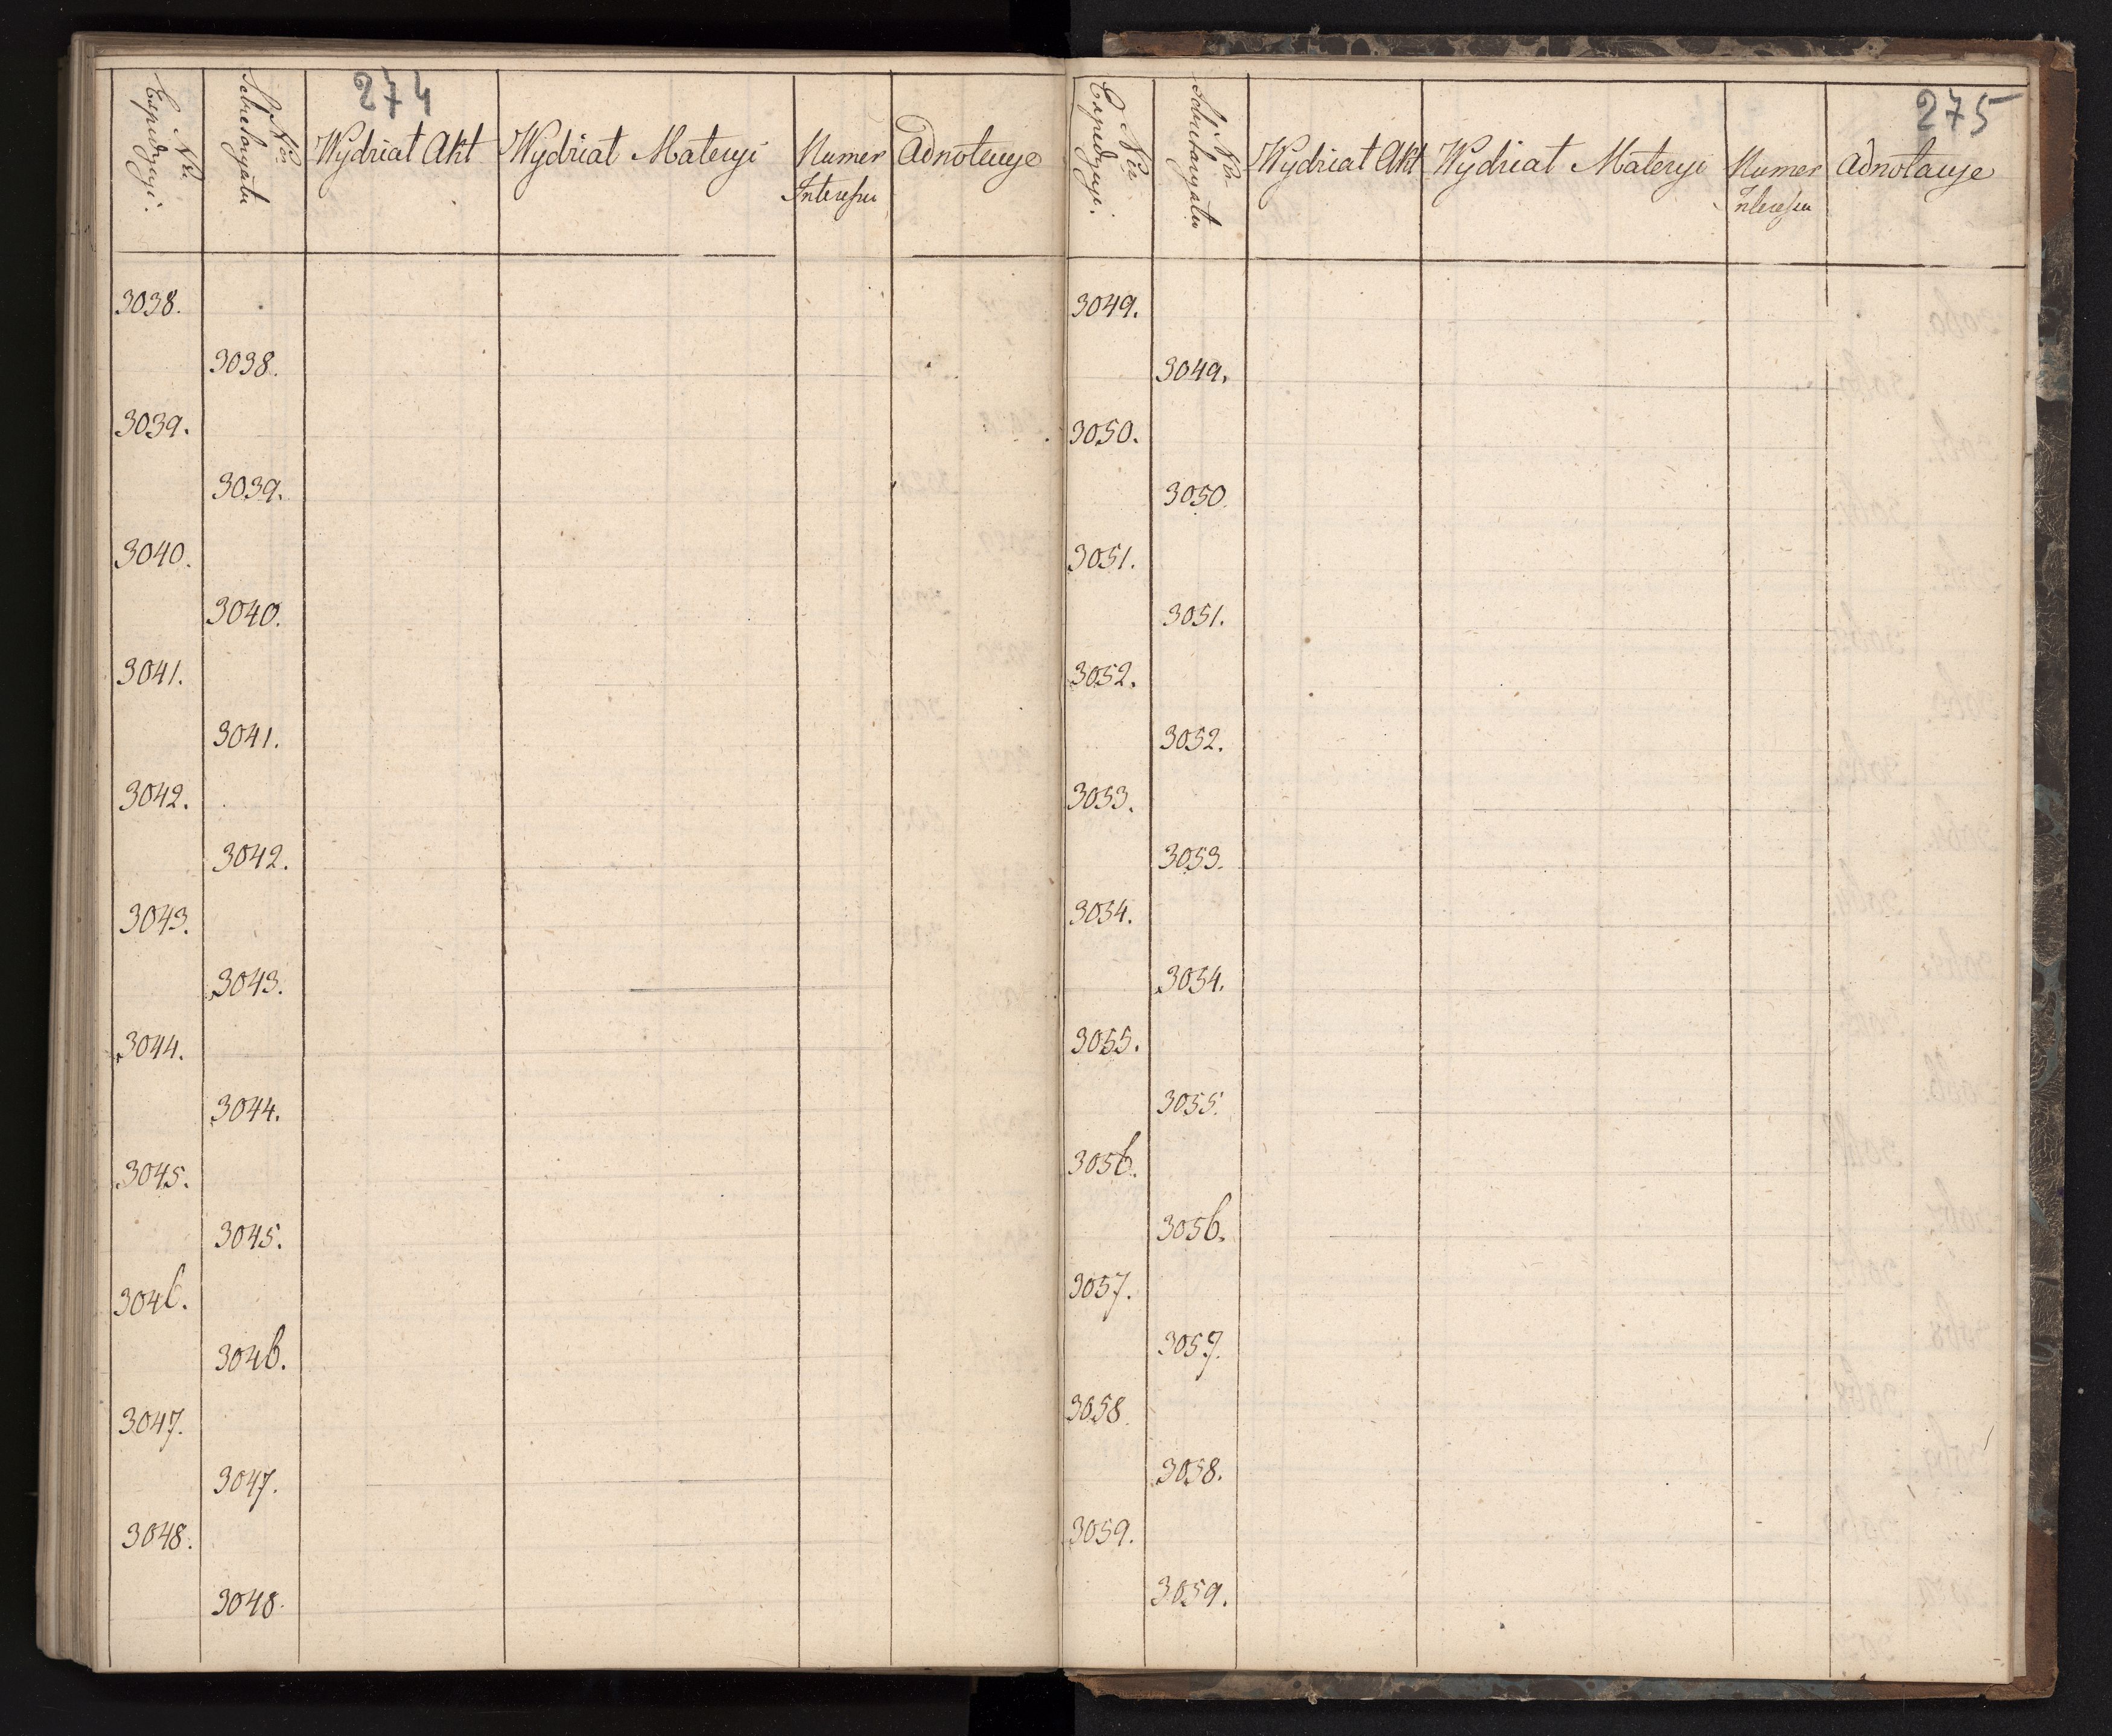 274
Nr. Expedycyi.
Nr. Sekretaryatu
Wydział Akt
Wydział Materyi
Numer Interessu
Adnotacye
3038.
3038.
3039.
3039.
3040.
3040.
3041.
3041.
3042.
3042.
3043.
3043.
3044.
3044.
3045.
3045.
3046.
3046.
3047.
3047.
3048.
3048.
275
Nr. Expedycyi.
Nr. Sekretaryatu
Wydział Akt
Wydział Materyi
Numer Interessu
Adnotacye
3049.
3049.
3050.
3050.
3051.
3051.
3052.
3052.
3053.
3053.
3054.
3054.
3055.
3055.
3056.
3056.
3057.
3057.
3058.
3058.
3059.
3059.